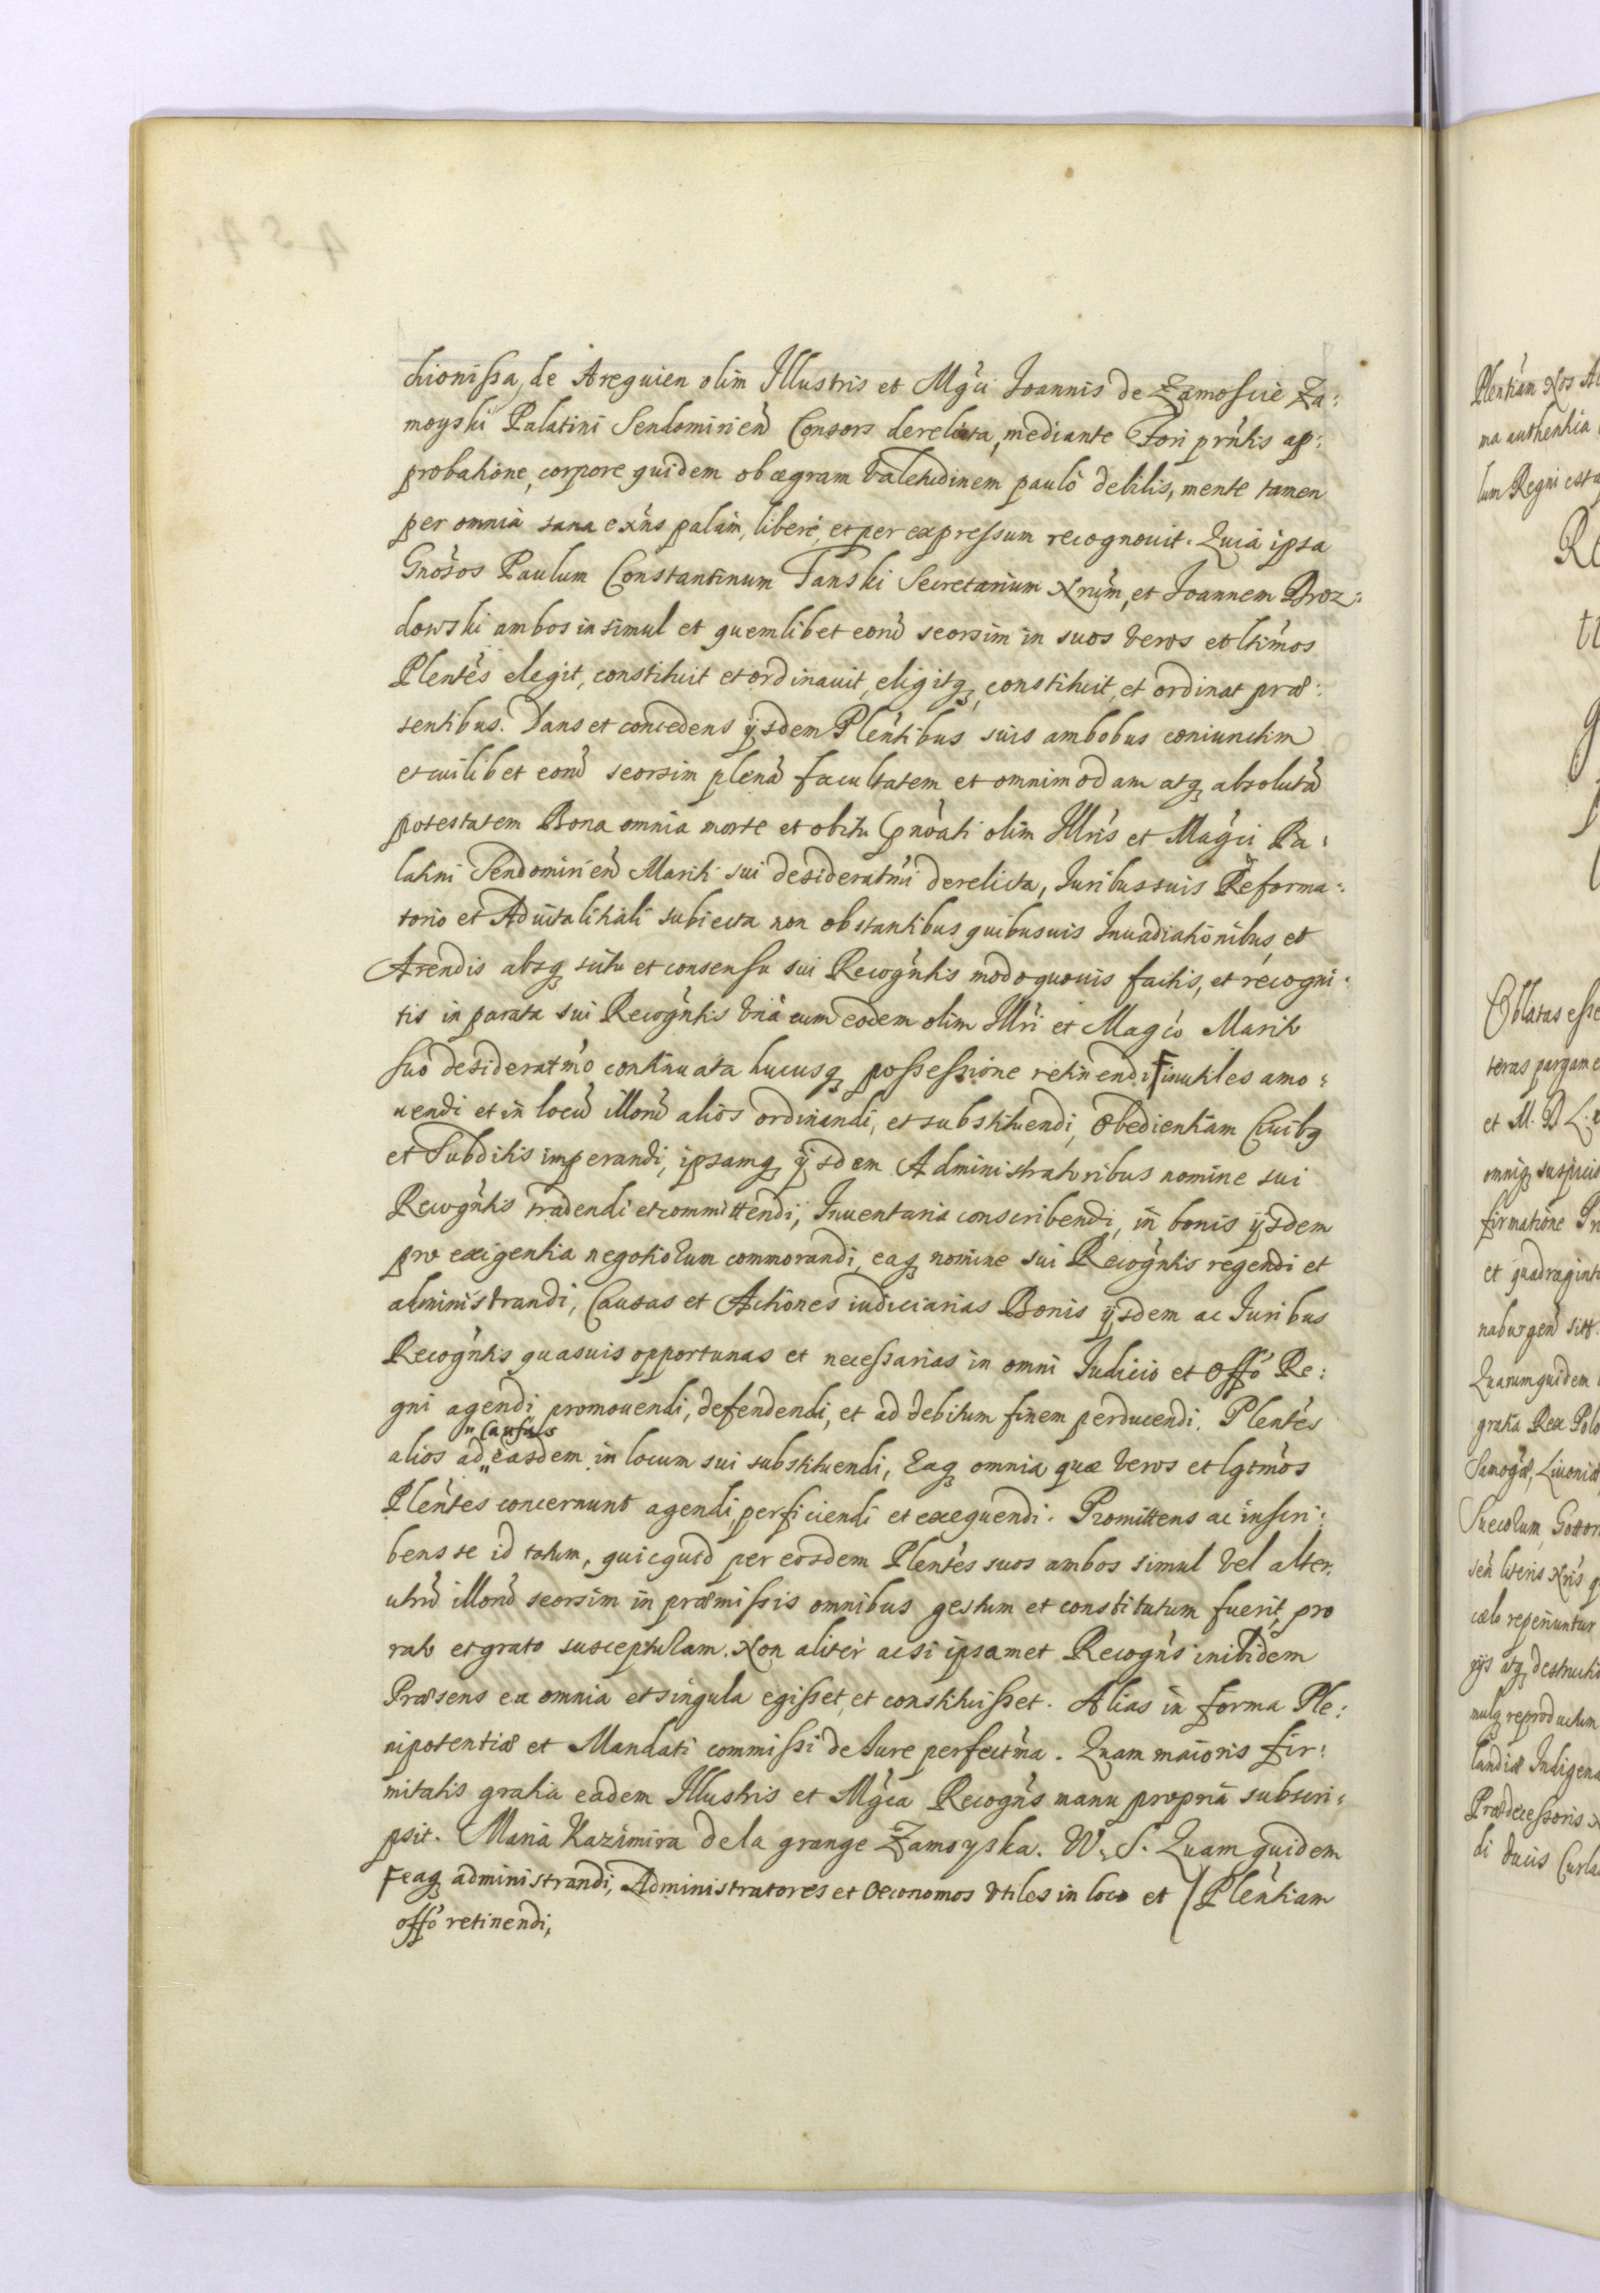 chionissa, de Areguien olim Illustris et Mgci Joannis de Zamoscie Za:
moyski Palatini Sendomirien Consors derelicta, mediante Fori prntis ap:
probatione, corpore quidem ob ægram valetudinem paulò debilis, mente tamen
per omnia sana exns palàm, liberè, et per expressum recognouit. Quia ipsa
Gnosos Paulum Constantinum Tanski Secretarium Nrum, et Joannem Broz:
dowski ambos insimul et quemlibet eorū seorsim in suos veros et ltimos
Plentes elegit, constituit et ordinauit, eligitq, constituit, et ordinat præ:
sentibus. Dans et concedens ijsdem Plentibus suis ambobus coniunctim
et cuilibet eorū seorsim plenā facultatem et omnimodam atq absolutā
potestatem Bona omnia morte et obitu pnoati olim Illris et Magci Pa:
latini Sendomirien Mariti sui desideratmi derelicta, Juribus suis Reforma:
torio et Aduitalitiali subiecta non obstantibus quibusuis Inuadiationibus et
Arendis absq scitu et consensu sui Recogntis modo quouis factis, et recogni:
tis in parata sui Recogntis vnà cum eodem olim Illri et Magco Marito
suo desideratmo continuata hucusq possessione retinendi Ⲅ inutiles amo:
uendi et in locū illorū alios ordinandi, et substituendi, Obedientiam Ciuibq
et Subditis imperandi, ipsamq ijsdem Administratoribus nomine sui
Recogntis tradendi et committendi, Inuentaria conscribendi, in bonis ijsdem
pro exigentia negotiorum commorandi, eaq nomine sui Recogntis regendi et
administrandi, Causas et Actiones iudiciarias Bonis ijsdem ac Juribus
Recogntis quasuis opportunas et necessarias in omni Judicio et Offo Re:
gni agendi promouendi, defendendi, et ad debitum finem perducendi. Plentes
„ causas
alios ad „ easdem in locum sui substituendi, Eaq omnia quæ veros et lgtmos
Plentes concernunt agendi, perficiendi et exequendi. Promittens ac inscri:
bens se id totum, quicquid per eosdem Plentes suos ambos simul vel alter
utrū illorū seorsim in præmissis omnibus gestum et constitutum fuerit, pro
rato et grato suscepturam. Non aliter ac si ipsamet Recogns inibidem
Præsens ea omnia et singula egisset, et constituisset. Alias in forma Ple:
nipotentiæ et Mandati commissi de Jure perfectma. Quam maioris fir:
mitatis gratia eadem Illustris et Mgca Recogns manu propriā subscri:
psit. Maria Kazimira de la grange Zamoyska. W. S. Quam quidem
Ⲅ eaq administrandi, Administratores et Œconomos vtiles in loco et / Plentiam
offo retinendi,